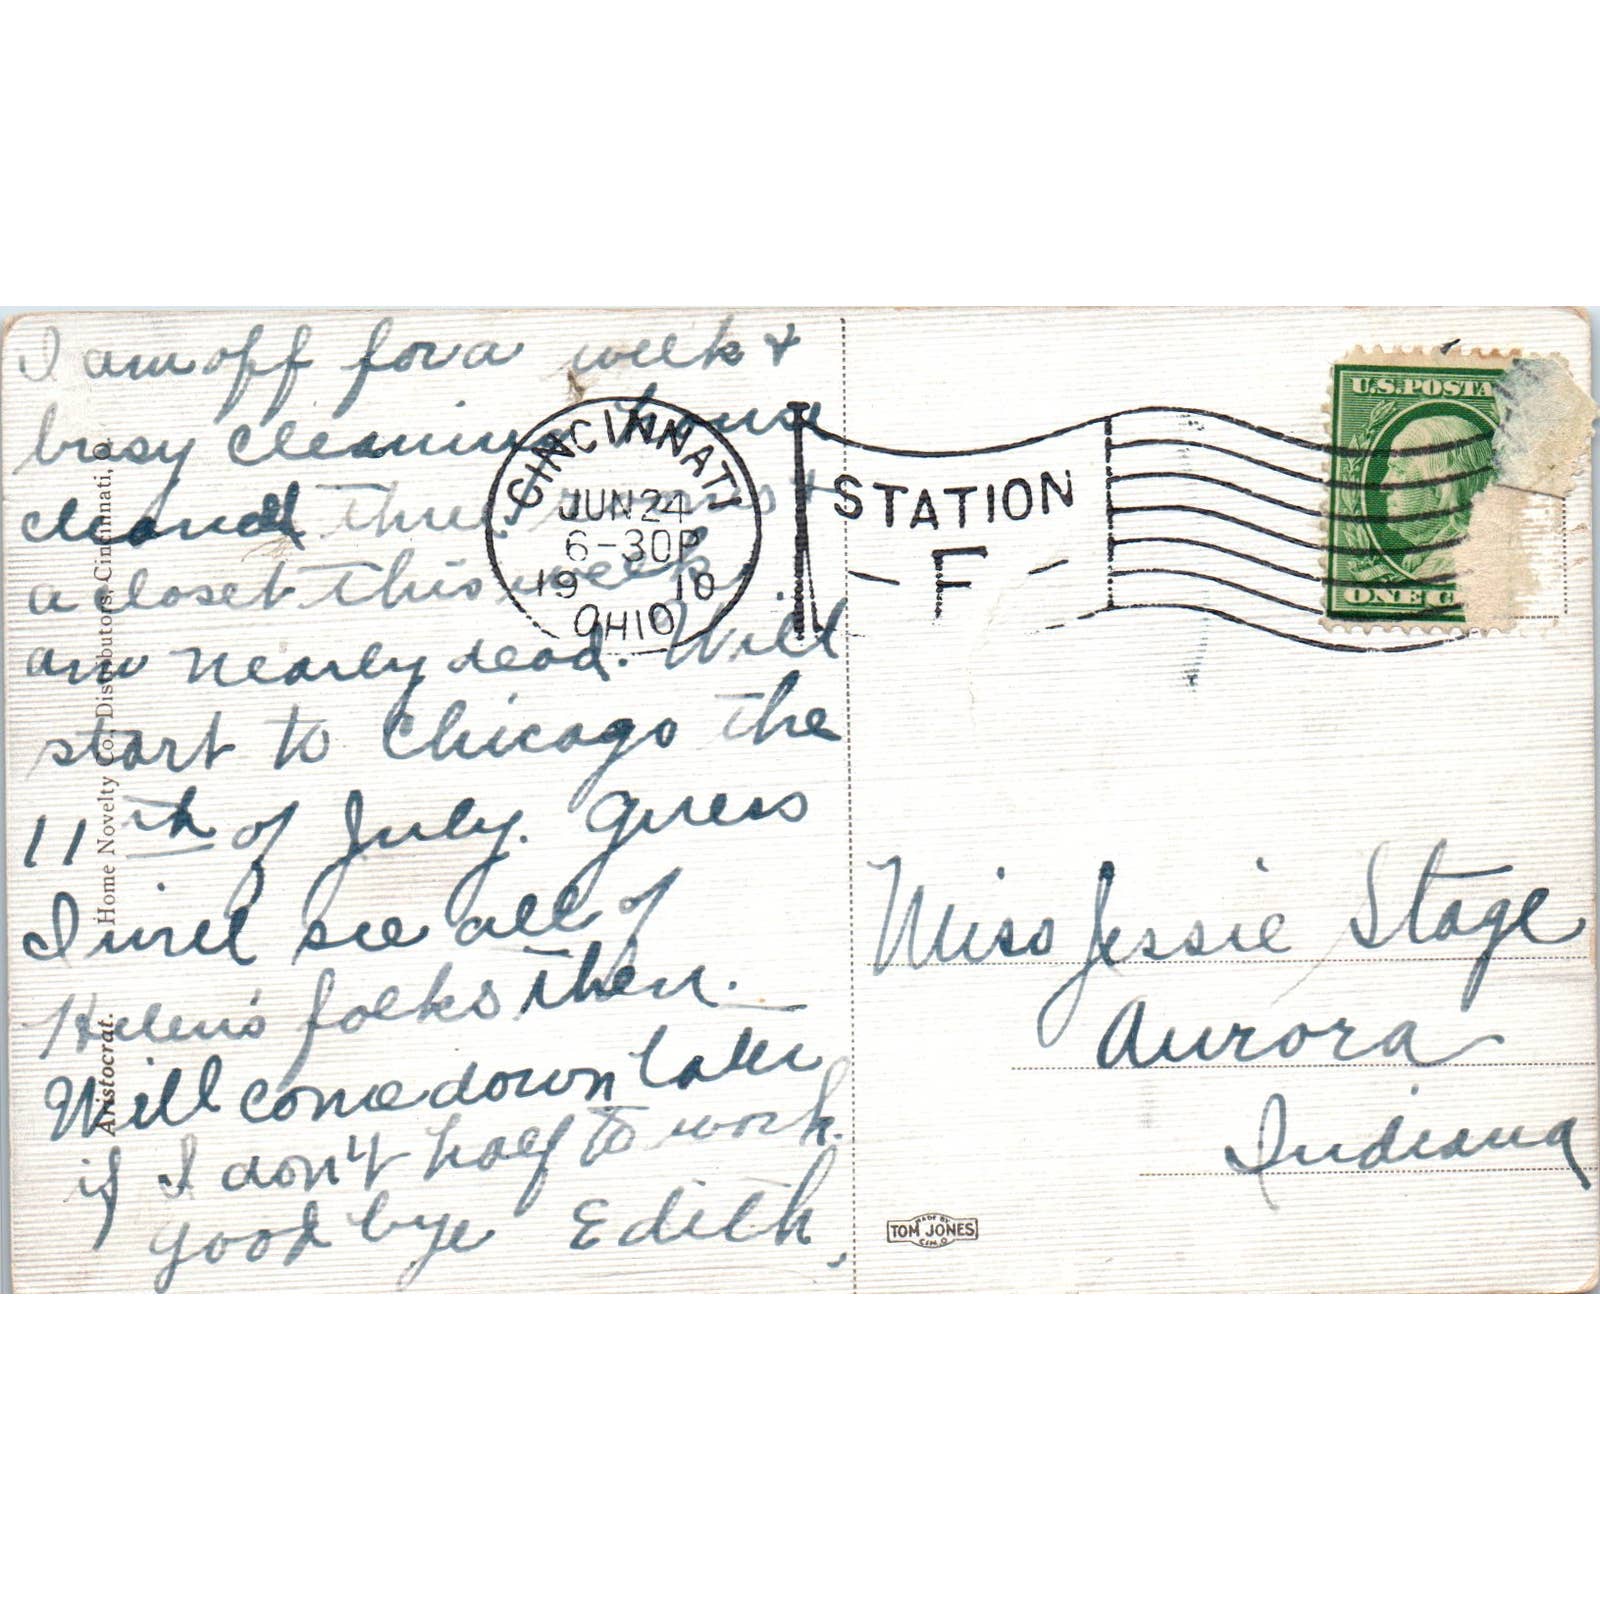 I am off for a week &
busy cleaning house
cleaned three rooms &
a closet this week,
am nearly dead. Will
start to Chicago the
11th of July. Guess
I will see all of
Helen's folks then.
Will come down later
if I don't half to work.
good bye Edith.
CINCINNATI
JUN 24
6-30P
1910
OHIO
STATION
F
U.S. POSTA
ONE C
Miss Jessie Stage
Aurora
Indiana
MADE BY
TOM JONES
CIN. O.
Aristocrat. Home Novelty Co. Distributors, Cincinnati, O.